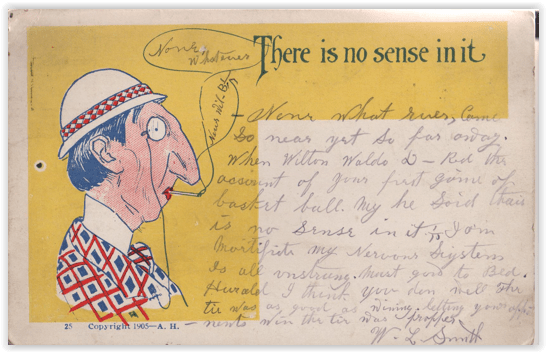 There is no sense in it
None
Whatever
None W.L.S.
- None what ever, Came
So near yet So far away.
When Wilton Waldo D - Red the
account of your first game of
basket ball. My he Said thair
is no Sense in it!! I am
Mortifide my Nervous System
Is all unstrung. Must goo to Bed.
Hurald I think you don well The
tie was as good as wining. letting your opp-
nents win the tie was propper
W. L. Smith
25 Copyright 1905—A. H.